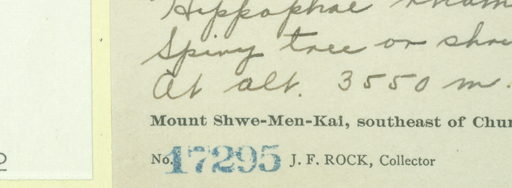 Hippophae
Spiny tree or
At alt. 3550 m.
Mount Shwe-Men-Kai, southeast of
No. 17295 J. F. ROCK, Collector